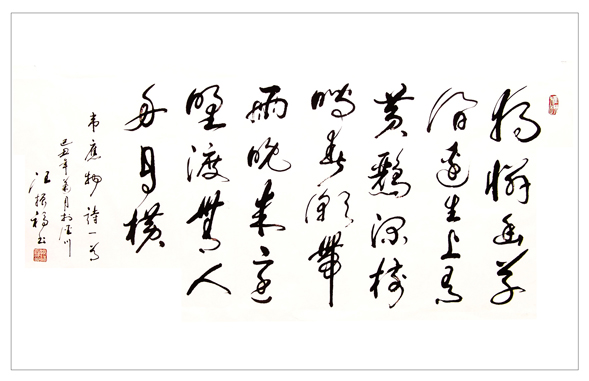 獨憐幽草
澗邊生上有
黃鸝深樹
鳴春潮帶
雨晚來急
野渡無人
舟自橫
韦應物詩一首
己丑年月於川
汪振福书